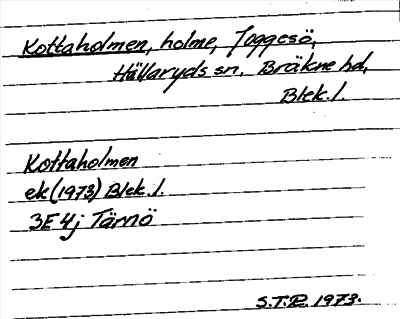 Kottaholmen, holme, Joggesö,
Hällaryds sn. Bräkne hd,
Blek. l.
Kottaholmen
ek (1973) Blek. l.
3E 4j Tärnö
S.T.R. 1973.